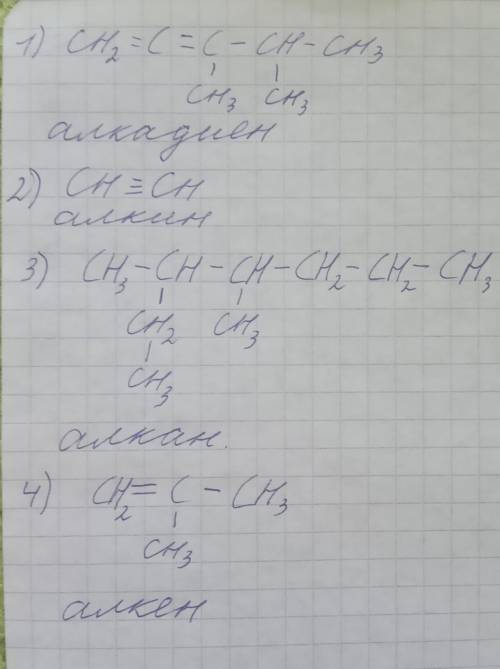 1) CH₂=C=C-CH-CH₃
CH₃ CH₃
алкадиен
2) CH≡CH
алкин
3) CH₃-CH-CH-CH₂-CH₂-CH₃
CH₂ CH₃
CH₃
алкан.
4) CH₂=C-CH₃
CH₃
алкен